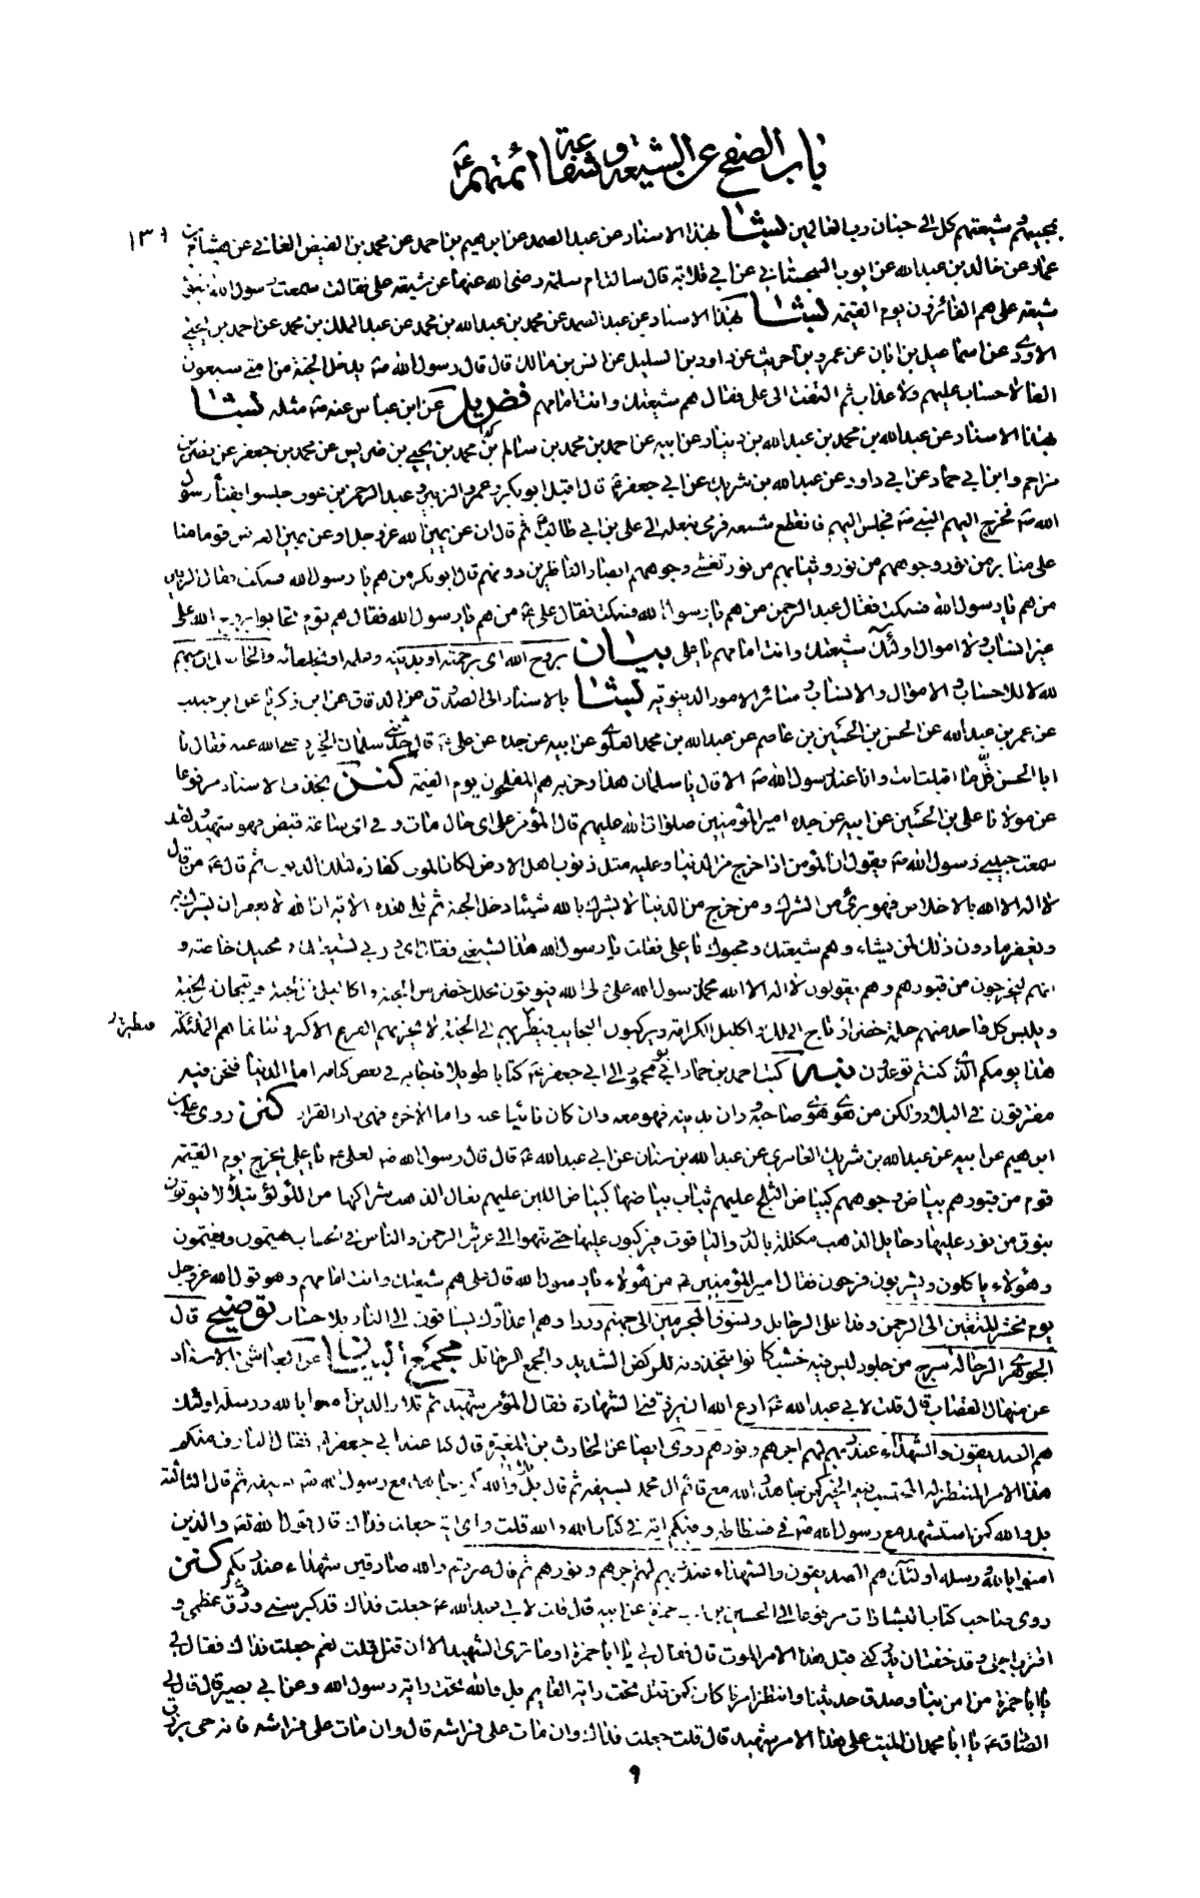 باب الصفح عن الشيعة وشفاعة أئمتهم
بحبيبهم وشيعتهم كل إلى جنان رب العالمين بشا بهذا الاسناد عن عبد الصمد عن ابرهيم بن احمد عن محمد بن الفيض الغساني عن هشام بن
١٣٦
عمار عن خالد بن عبد الله عن ايوب السجستاني عن ابي قلابة قال سالت ام سلمة رضي الله عنها عن شيعة علي فقالت سمعت رسول الله يقول
شيعة علي هم الفائزون يوم القيمة بشا بهذا الاسناد عن عبد الصمد عن محمد بن عبد الله بن محمد عن عبد الملك بن محمد عن احمد بن يحيى
الاودي عن اسماعيل بن ابان عن عمرو بن حريث عن داود بن السليل عن انس بن مالك قال قال رسول الله ص يدخل الجنة من امتي سبعون
الفا لا حساب عليهم ولا عذاب ثم التفت الى علي فقال هم شيعتك وانت امامهم فض يل عن ابن عباس عنه ص مثله بشا
بهذا الاسناد عن عبد الله بن محمد بن عبد الله بن دينار عن ابيه عن احمد بن محمد بن سالم عن محمد بن يحيى بن ضريس عن محمد بن جعفر عن نصر بن
مزاحم وابن ابي حماد عن ابي داود عن عبد الله بن شريك عن ابي جعفر ع قال اقبل ابو بكر وعمر والزبير وعبد الرحمن بن عوف جلسوا بفناء رسول
الله ص فخرج اليهم النبي ص فجلس اليهم فانقطع شسعه فرمى بنعله الى علي بن ابي طالب ثم قال ان عن يمين الله عز وجل او عن يمين العرش قوما منا
على منابر من نور وجوههم من نور وثيابهم من نور تغشى وجوههم ابصار الناظرين دونهم قال ابو بكر من هم يا رسول الله فسكت فقال الزبير
من هم يا رسول الله فسكت فقال عبد الرحمن من هم يا رسول الله فسكت فقال علي ع من هم يا رسول الله فقال هم قوم تحابوا بروح الله على
غير انساب ولا اموال اولئك شيعتك وانت امامهم يا علي بيان بروح الله اي برحمته او بدينه
لله لا للاحساب والاموال والانساب وسائر الامور الدنيوية بشا بالاسناد الى الصدوق عن الدقاق عن ابن زكريا عن ابن حبيب
عن عمر بن عبد الله عن الحسن بن الحسين بن عاصم عن عبد الله بن محمد العلوي عن ابيه عن جده عن علي ع قال حدثني سلمان الخير رضي الله عنه فقال يا
ابا الحسن قل ما اقبلت انت وانا عند رسول الله ص الا قال يا سلمان هذا وحزبه هم المفلحون يوم القيمة كنز بحذف الاسناد مرفوعا
عن مولانا علي بن الحسين عن ابيه عن جده امير المؤمنين صلوات الله عليهم قال المؤمن على اي حال مات وفي اي ساعة قبض فهو شهيد ولقد
سمعت حبيبي رسول الله ص يقول ان المؤمن اذا خرج من الدنيا وعليه مثل ذنوب اهل الارض لكان الموت كفارة لتلك الذنوب ثم قال ع من قال
لا اله الا الله بالاخلاص فهو بريء من الشرك ومن خرج من الدنيا لا يشرك بالله شيئا دخل الجنة ثم تلا هذه الاية ان الله لا يغفر ان يشرك به
ويغفر ما دون ذلك لمن يشاء وهم شيعتك ومحبوك يا علي فقلت يا رسول الله هذا لشيعتي فقال اي وربي لشيعتك ومحبيك خاصة و
انهم ليخرجون من قبورهم وهم يقولون لا اله الا الله محمد رسول الله علي ولي الله فيؤتون بحلل خضر من الجنة واكاليل من الجنة وتيجان من الجنة
ويلبس كل واحد منهم حلة خضراء وتاج الملك واكليل الكرامة ويركبون النجائب فيطير بهم الى الجنة لا يحزنهم الفزع الاكبر وتتلقاهم الملئكة
فتطير
هذا يومكم الذي كنتم توعدون كتب احمد بن حماد ابو محمود الى ابي جعفر ع كتابا طويلا فاجابه في بعض كتابه اما الدنيا فنحن فيه
مفترقون في البلاد ولكن من هوي هوى صاحبه ودان بدينه فهو معه وان كان نائيا عنه واما الاخرة فهي دار القرار كنز روى علي بن
ابرهيم عن ابيه عن عبد الله بن شريك العامري عن عبد الله بن سنان عن ابي عبد الله ع قال قال رسول الله ص لعلي ع يا علي يخرج يوم القيمة
قوم من قبورهم بياض وجوههم كبياض الثلج عليهم ثياب بياضها كبياض اللبن عليهم نعال الذهب شراكها من اللؤلؤ يتلألأ فيؤتون
بنوق من نور عليها رحايل الذهب مكللة بالدر والياقوت فيركبون عليها حتى ينتهوا الى عرش الرحمن والناس في الحساب يهتمون ويغتمون
وهؤلاء ياكلون ويشربون فرحون فقال امير المؤمنين ع من هؤلاء يا رسول الله قال علي هم شيعتك وانت امامهم وهو قول الله عز وجل
يوم نحشر المتقين الى الرحمن وفدا على الرحايل ونسوق المجرمين الى جهنم وردا وهم اعداؤك يساقون الى النار بلا حساب توضيح قال
الجوهري الرحالة سرج من جلود ليس فيه خشب كانوا يتخذونه للركض الشديد والجمع الرحائل مجمع البيان عن العياشي بالاسناد
عن منهال القصاب قال قلت لابي عبد الله ع ادع الله ان يرزقني الشهادة فقال المؤمن شهيد ثم تلا والذين امنوا بالله ورسله اولئك
هم الصديقون والشهداء عند ربهم لهم اجرهم ونورهم وروى ايضا عن الحارث بن المغيرة قال كنا عند ابي جعفر ع فقال العارف منكم
هذا الامر المنتظر له المحتسب فيه الخير كمن جاهد والله مع قائم ال محمد بسيفه ثم قال بل والله كمن جاهد مع رسول الله ص بسيفه ثم قال الثالثة
بل والله كمن استشهد مع رسول الله ص في فسطاطه وفيكم اية في كتاب الله قلت واي اية جعلت فداك قال قول الله تع والذين
امنوا بالله ورسله اولئك هم الصديقون والشهداء عند ربهم لهم اجرهم ونورهم ثم قال صرتم والله صادقين شهداء عند ربكم كنز
روى صاحب كتاب البشارات مرفوعا الى الحسين بن حمزة عن ابيه قال قلت لابي عبد الله ع جعلت فداك قد كبر سني ودق عظمي و
اقترب اجلي وقد خفت ان يدركني قبل هذا الامر الموت قال فقال لي يا ابا حمزة اوما ترى الشهيد الا من قتل قلت نعم جعلت فداك فقال لي
يا ابا حمزة من امن بنا وصدق حديثنا وانتظر امرنا كان كمن قتل تحت راية القايم بل والله تحت راية رسول الله وعن ابي بصير قال قال لي
الصادق ع يا ابا محمد ان الميت على هذا الامر شهيد قال قلت جعلت فداك وان مات على فراشه قال وان مات على فراشه فانه حي يرزق
٩